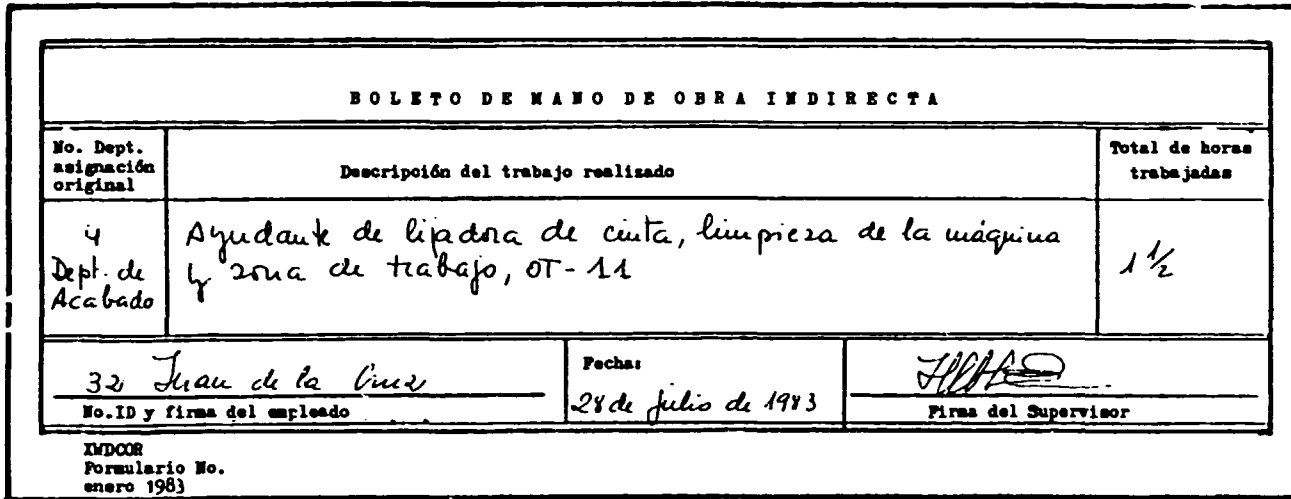 BOLETO DE MANO DE OBRA INDIRECTA
No. Dept.
asignación
original
Descripción del trabajo realizado
Total de horas
trabajadas
4
Dept. de
Acabado
Ayudante de lijadora de cinta, limpieza de la máquina
y zona de trabajo, OT-11
1 1/2
32 Juan de la Cruz
No.ID y firma del empleado
Fecha:
28 de julio de 1983
Firma del Supervisor
XWDCOR
Formulario No.
enero 1983